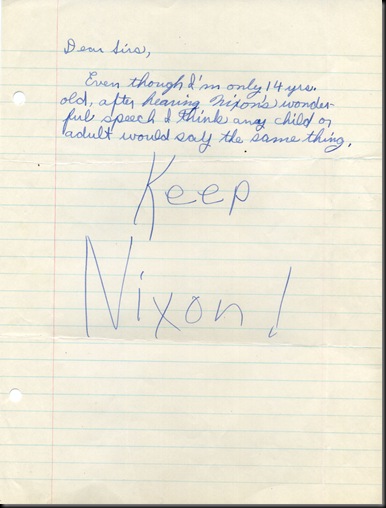 Dear Sirs,
Even though I'm only 14 yrs.
old, after hearing Nixon's wonder-
ful speech I think any child or
adult would say the same thing.
Keep
Nixon!